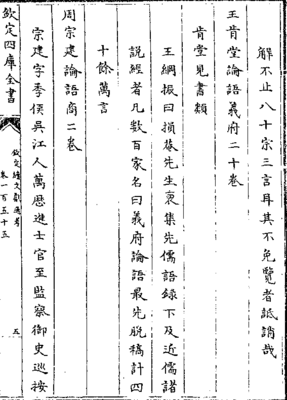 解不止八十宗三言耳其不免覽者詆誚哉
王肯堂論語義府二十卷
肯堂見書類
王綱振曰損菴先生裒集先儒語録下及近儒諸
說經者凡數百家名曰義府論語最先脫稿計四
十餘萬言
周宗建論語商二卷
宗建字季侯吳江人萬歷進士官至監察御史巡按
欽定四庫全書
卷一百五十五
五